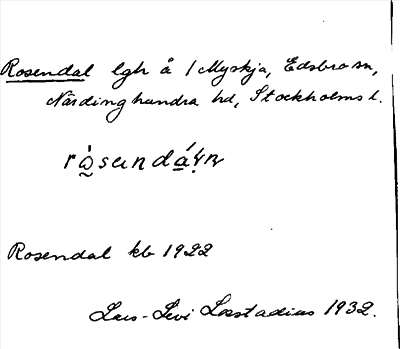 Rosendal lgh å 1 Myskja, Edsbro sn,
Närdinghundra hd, Stockholms l.
Rosendal kb 1922
Lars-Levi Læstadius 1932.